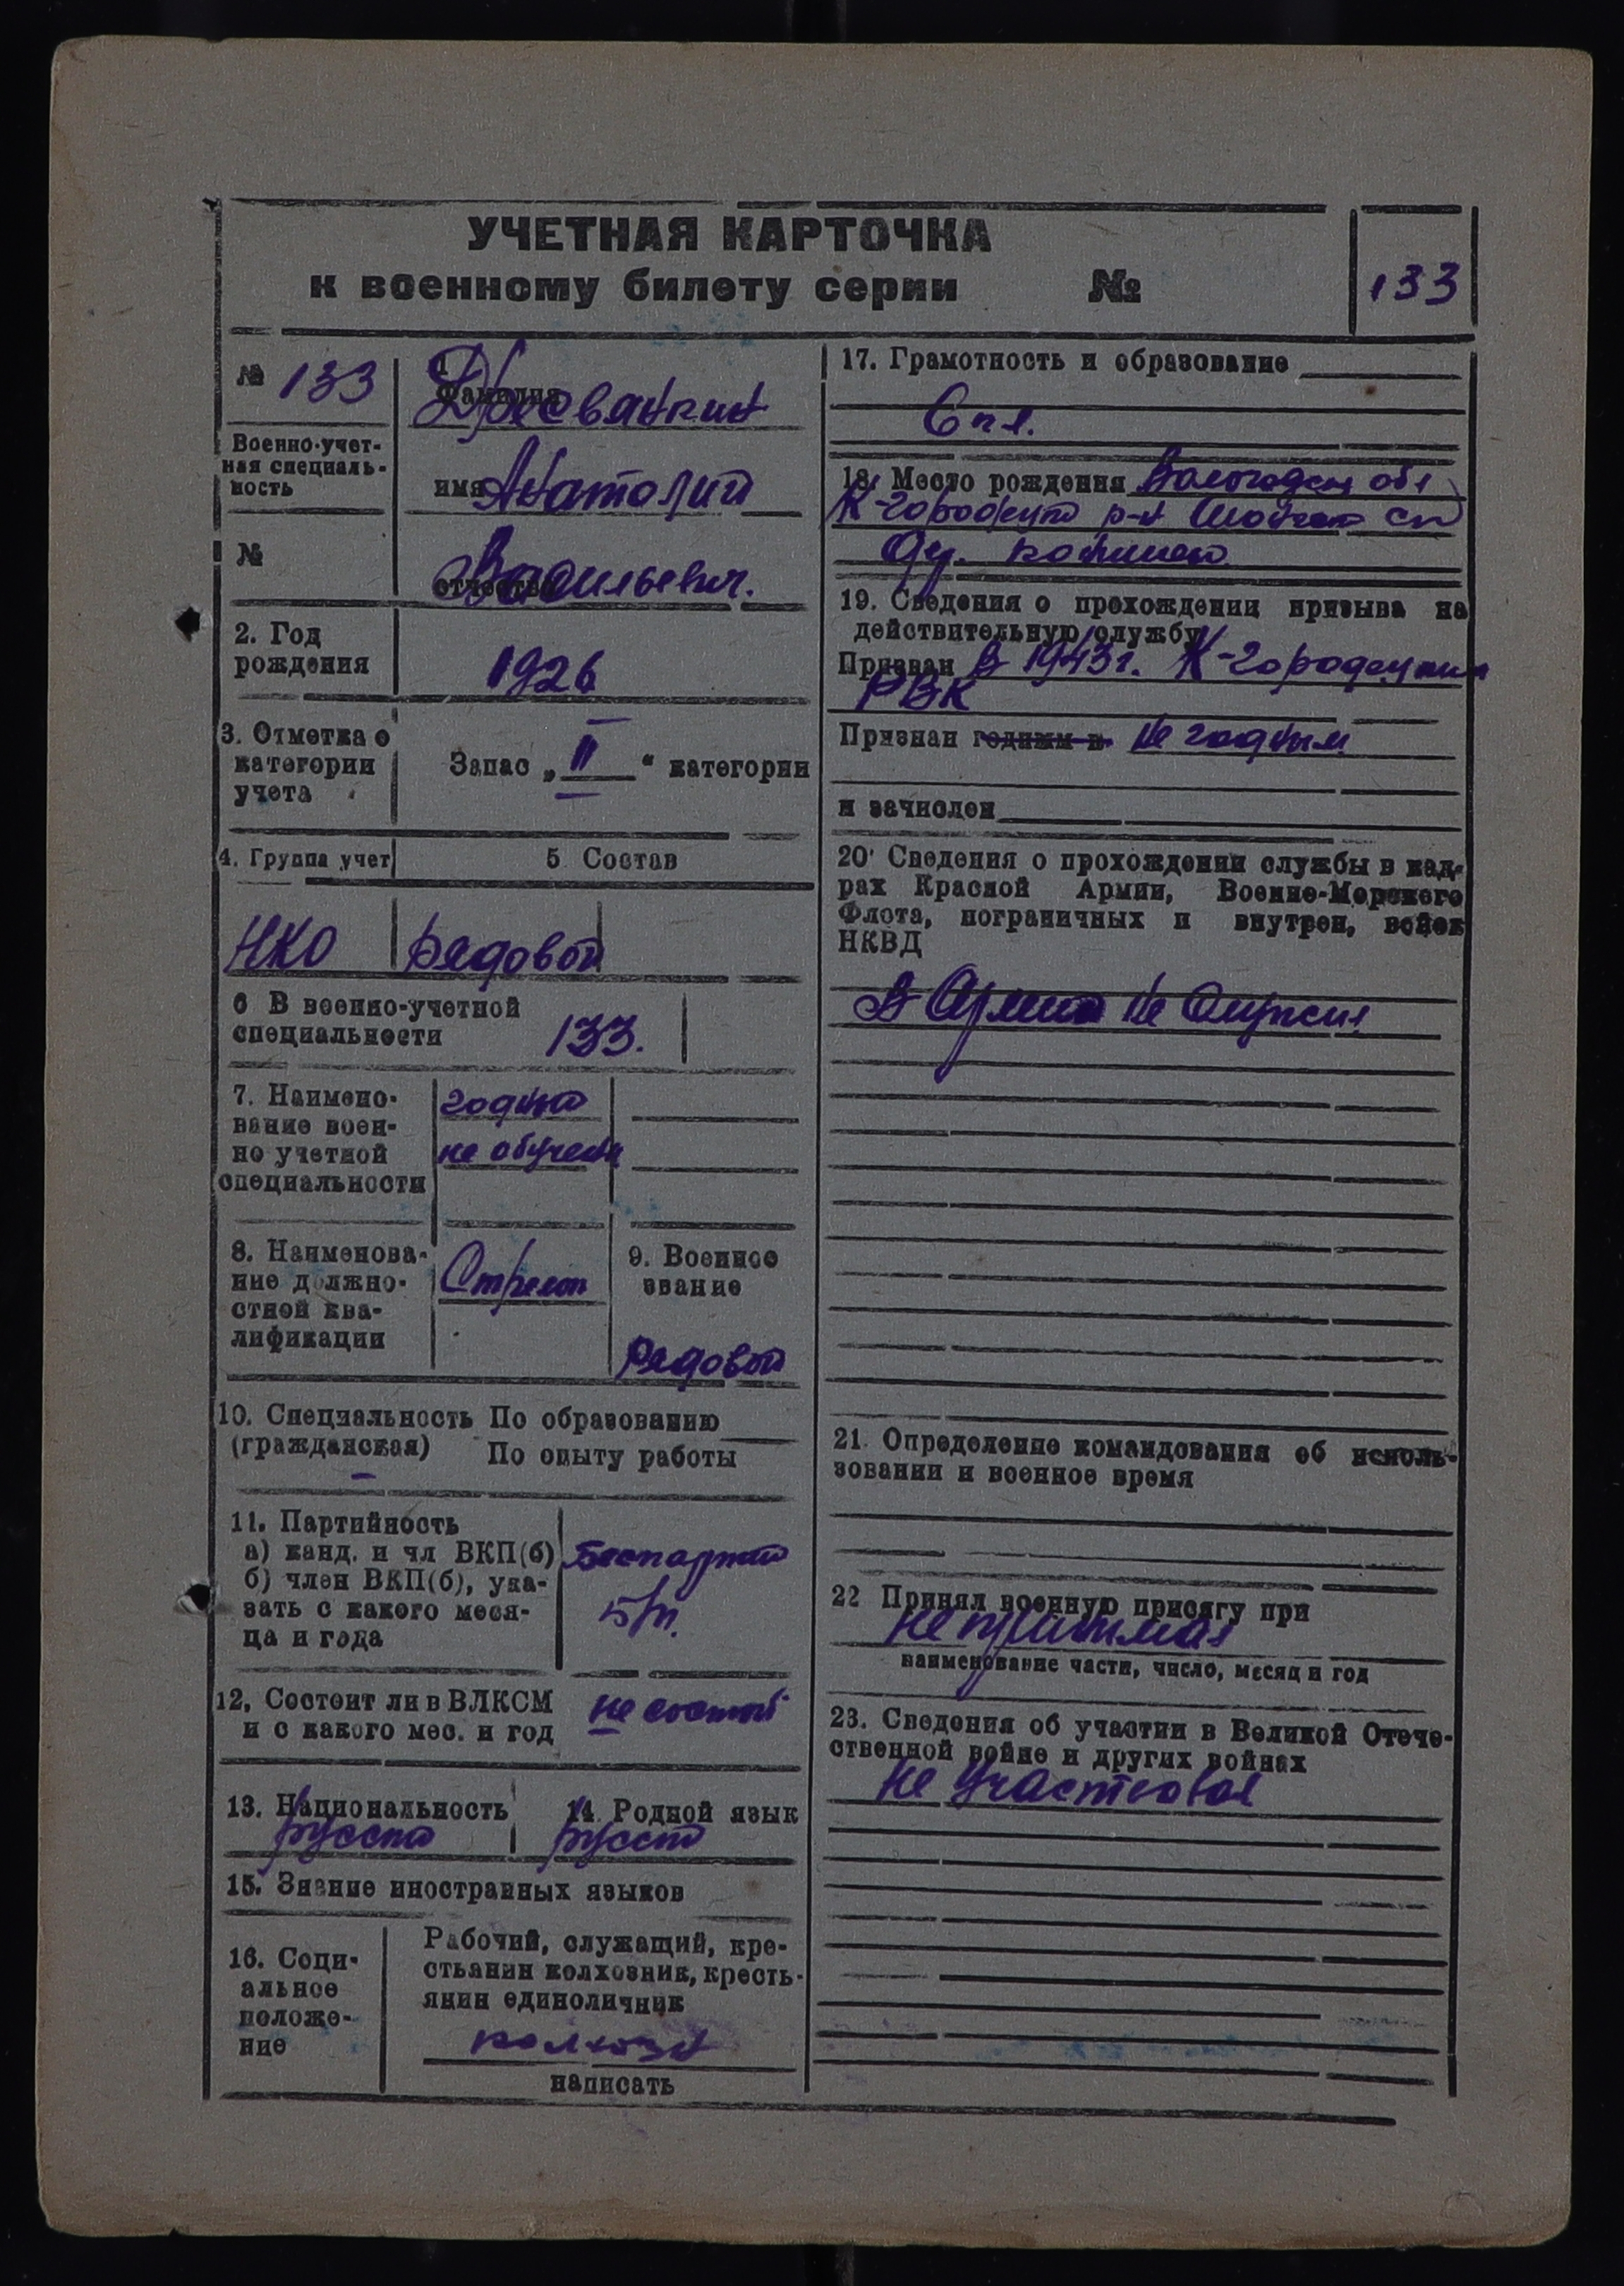 УЧЕТНАЯ КАРТОЧКА
к военному билету серии №
133
№ 133
1
Фамилия
Военно-учет-
ная специаль-
ность
имя Анатолий
№
отчество Васильевич.
2. Год
рождения
1926
3. Отметка о
категории
учета
Запас „ II “ категории
4. Группа учет
5 Состав
НКО
рядовой
6 В военно-учетной
специальности
133.
7. Наимено-
вание воен-
но учетной
специальности
годный
не обучен
8. Наименова-
ние должно-
стной ква-
лификации
Стрелок
9. Военное
звание
Рядовой
10. Специальность По образованию
(гражданская) По опыту работы
–
11. Партийность
а) канд. и чл ВКП(б)
б) член ВКП(б), ука-
зать с какого меся-
ца и года
б/п.
12, Состоит ли в ВЛКСМ
и с какого мес. и год
не состоит
13. Национальность
14. Родной язык
15. Знание иностранных языков
16. Соци-
альное
положе-
ние
Рабочий, служащий, кре-
стьянин колхозник, кресть-
янин единоличник
колхозн
написать
17. Грамотность и образование
6 кл.
18. Место рождения Вологодск обл
К-городецкий р-н
дер.
19. Сведения о прохождении призыва на
действительную службу
Призван в 1943 г. К-городецким
РВК
Признан годным к не годным
и зачислен
20' Сведения о прохождении службы в кад-
рах Красной Армии, Военно-Морского
Флота, пограничных и внутрен, войск
НКВД
В Армии не служил
21. Определение командования об исполь-
зовании и военное время
22 Принял военную присягу при
не принимал
наименование части, число, месяц и год
23. Сведения об участии в Великой Отече-
ственной войне и других войнах
не участвовал